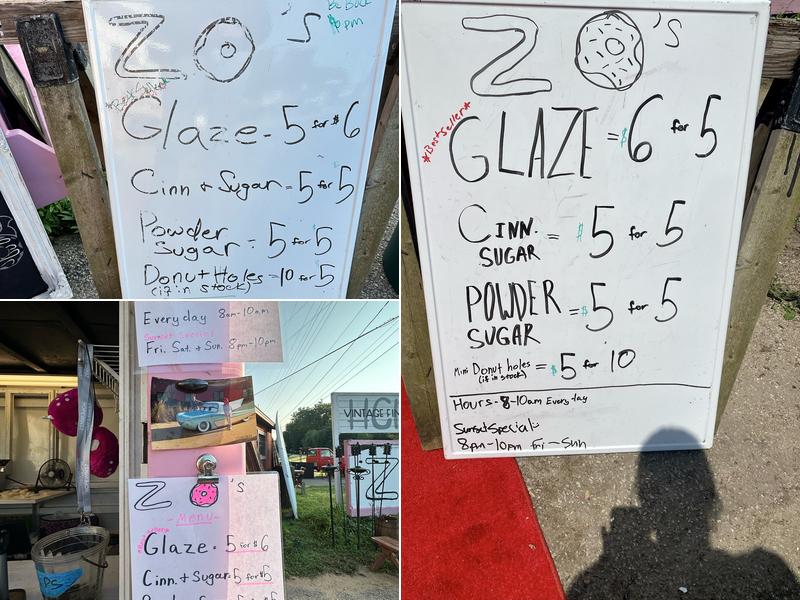 Be Back
8pm
ZO'S
*Best Seller*
Glaze - 5 for $6
Cinn + Sugar = 5 for 5
Powder
Sugar = 5 for 5
Donut Holes = 10 for 5
(if in stock)
ZO'S
*Best Seller*
GLAZE = $6 for 5
CINN.
SUGAR = $5 for 5
POWDER
SUGAR = $5 for 5
Mini Donut holes = $5 for 10
(if in stock)
Hours - 8-10am Every day
Sunset Special:
8pm-10pm Fri - Sun
Everyday 8am-10am
Sunset Special
Fri. Sat. + Sun. 8pm-10pm
VINTAGE FIN
ZO'S
- Menu -
Glaze - 5 for $6
Cinn. + Sugar - 5 for $5